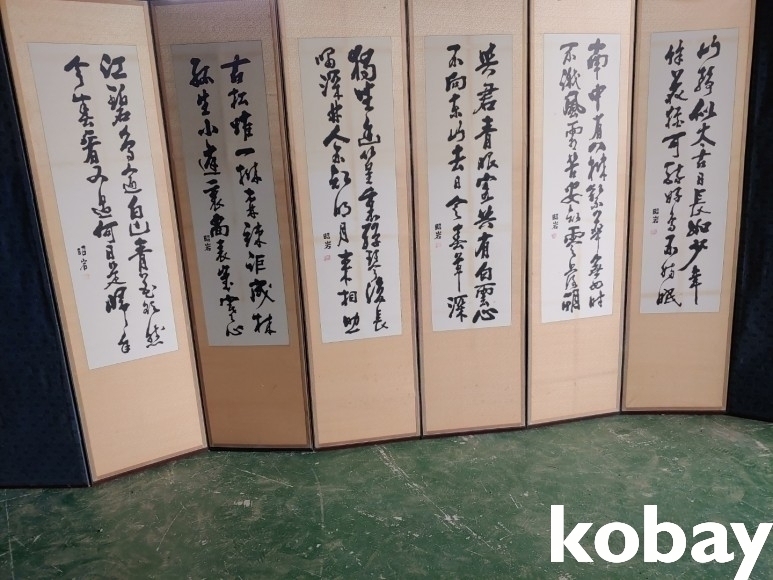 山靜似太古日長如少年
餘花猶可醉好鳥不妨眠
昭岩
南中有八樹繁華無四時
不識風霜苦安知零落期
昭岩
與君青眼客共有白雲心
不向東山去日令春草深
昭岩
獨坐幽篁裏彈琴復長
嘯深林人不知明月來相照
昭岩
古松惟一株森疎詎成林
孤生小庭裏尚表歲寒心
昭岩
江碧鳥逾白山青花欲然
今春看又過何日是歸年
昭岩
kobay